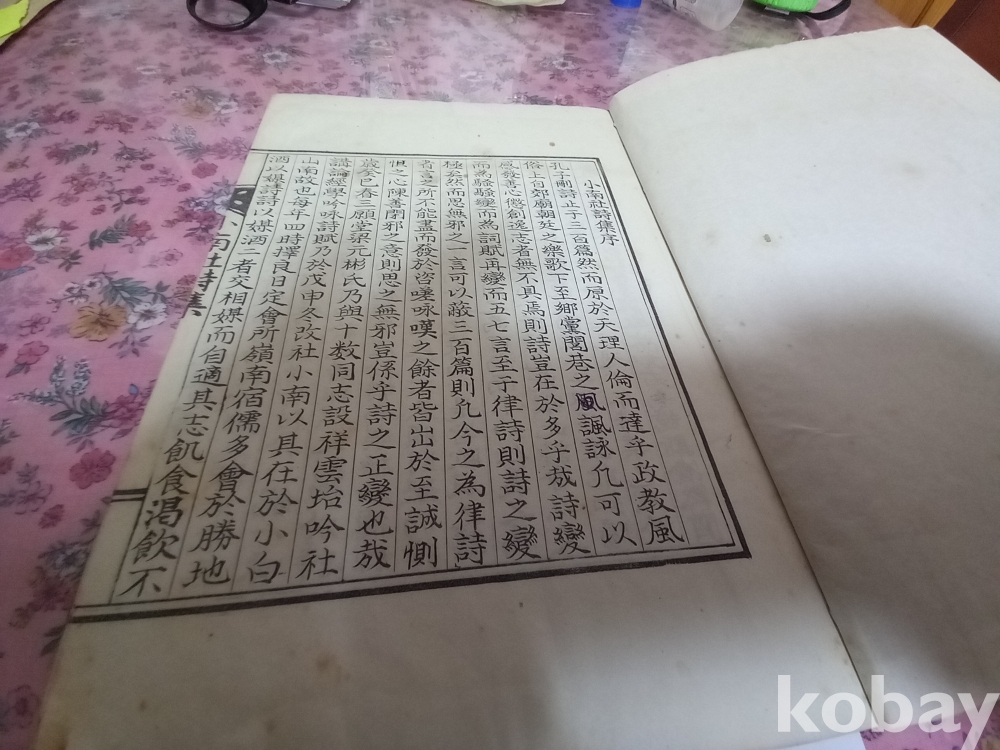 小南社詩集序
孔子刪詩止于三百篇然而原於天理人倫而達乎政教風
俗上自郊廟朝廷之樂歌下至鄉黨閭巷之風諷詠凡可以
感發善心懲創逸志者無不具焉則詩豈在於多乎哉詩變
而為騷騷變而為詞賦再變而五七言至于律詩則詩之變
極矣然而思無邪之一言可以蔽三百篇則凡今之為律詩
者言之所不能盡而發於咨嗟咏嘆之餘者皆出於至誠惻
怛之心陳善閉邪之意則思之無邪豈係乎詩之正變也哉
歲癸巳春三願堂梁元彬氏乃與十数同志設祥雲坮吟社
講論經學吟咏詩賦乃於戊申冬改社小南以其在於小白
山南故也每年四時擇良日定會所嶺南宿儒多會於勝地
酒以媒詩詩以媒酒二者交相媒而自適其志飢食渴飲不
小南社詩集
kobay